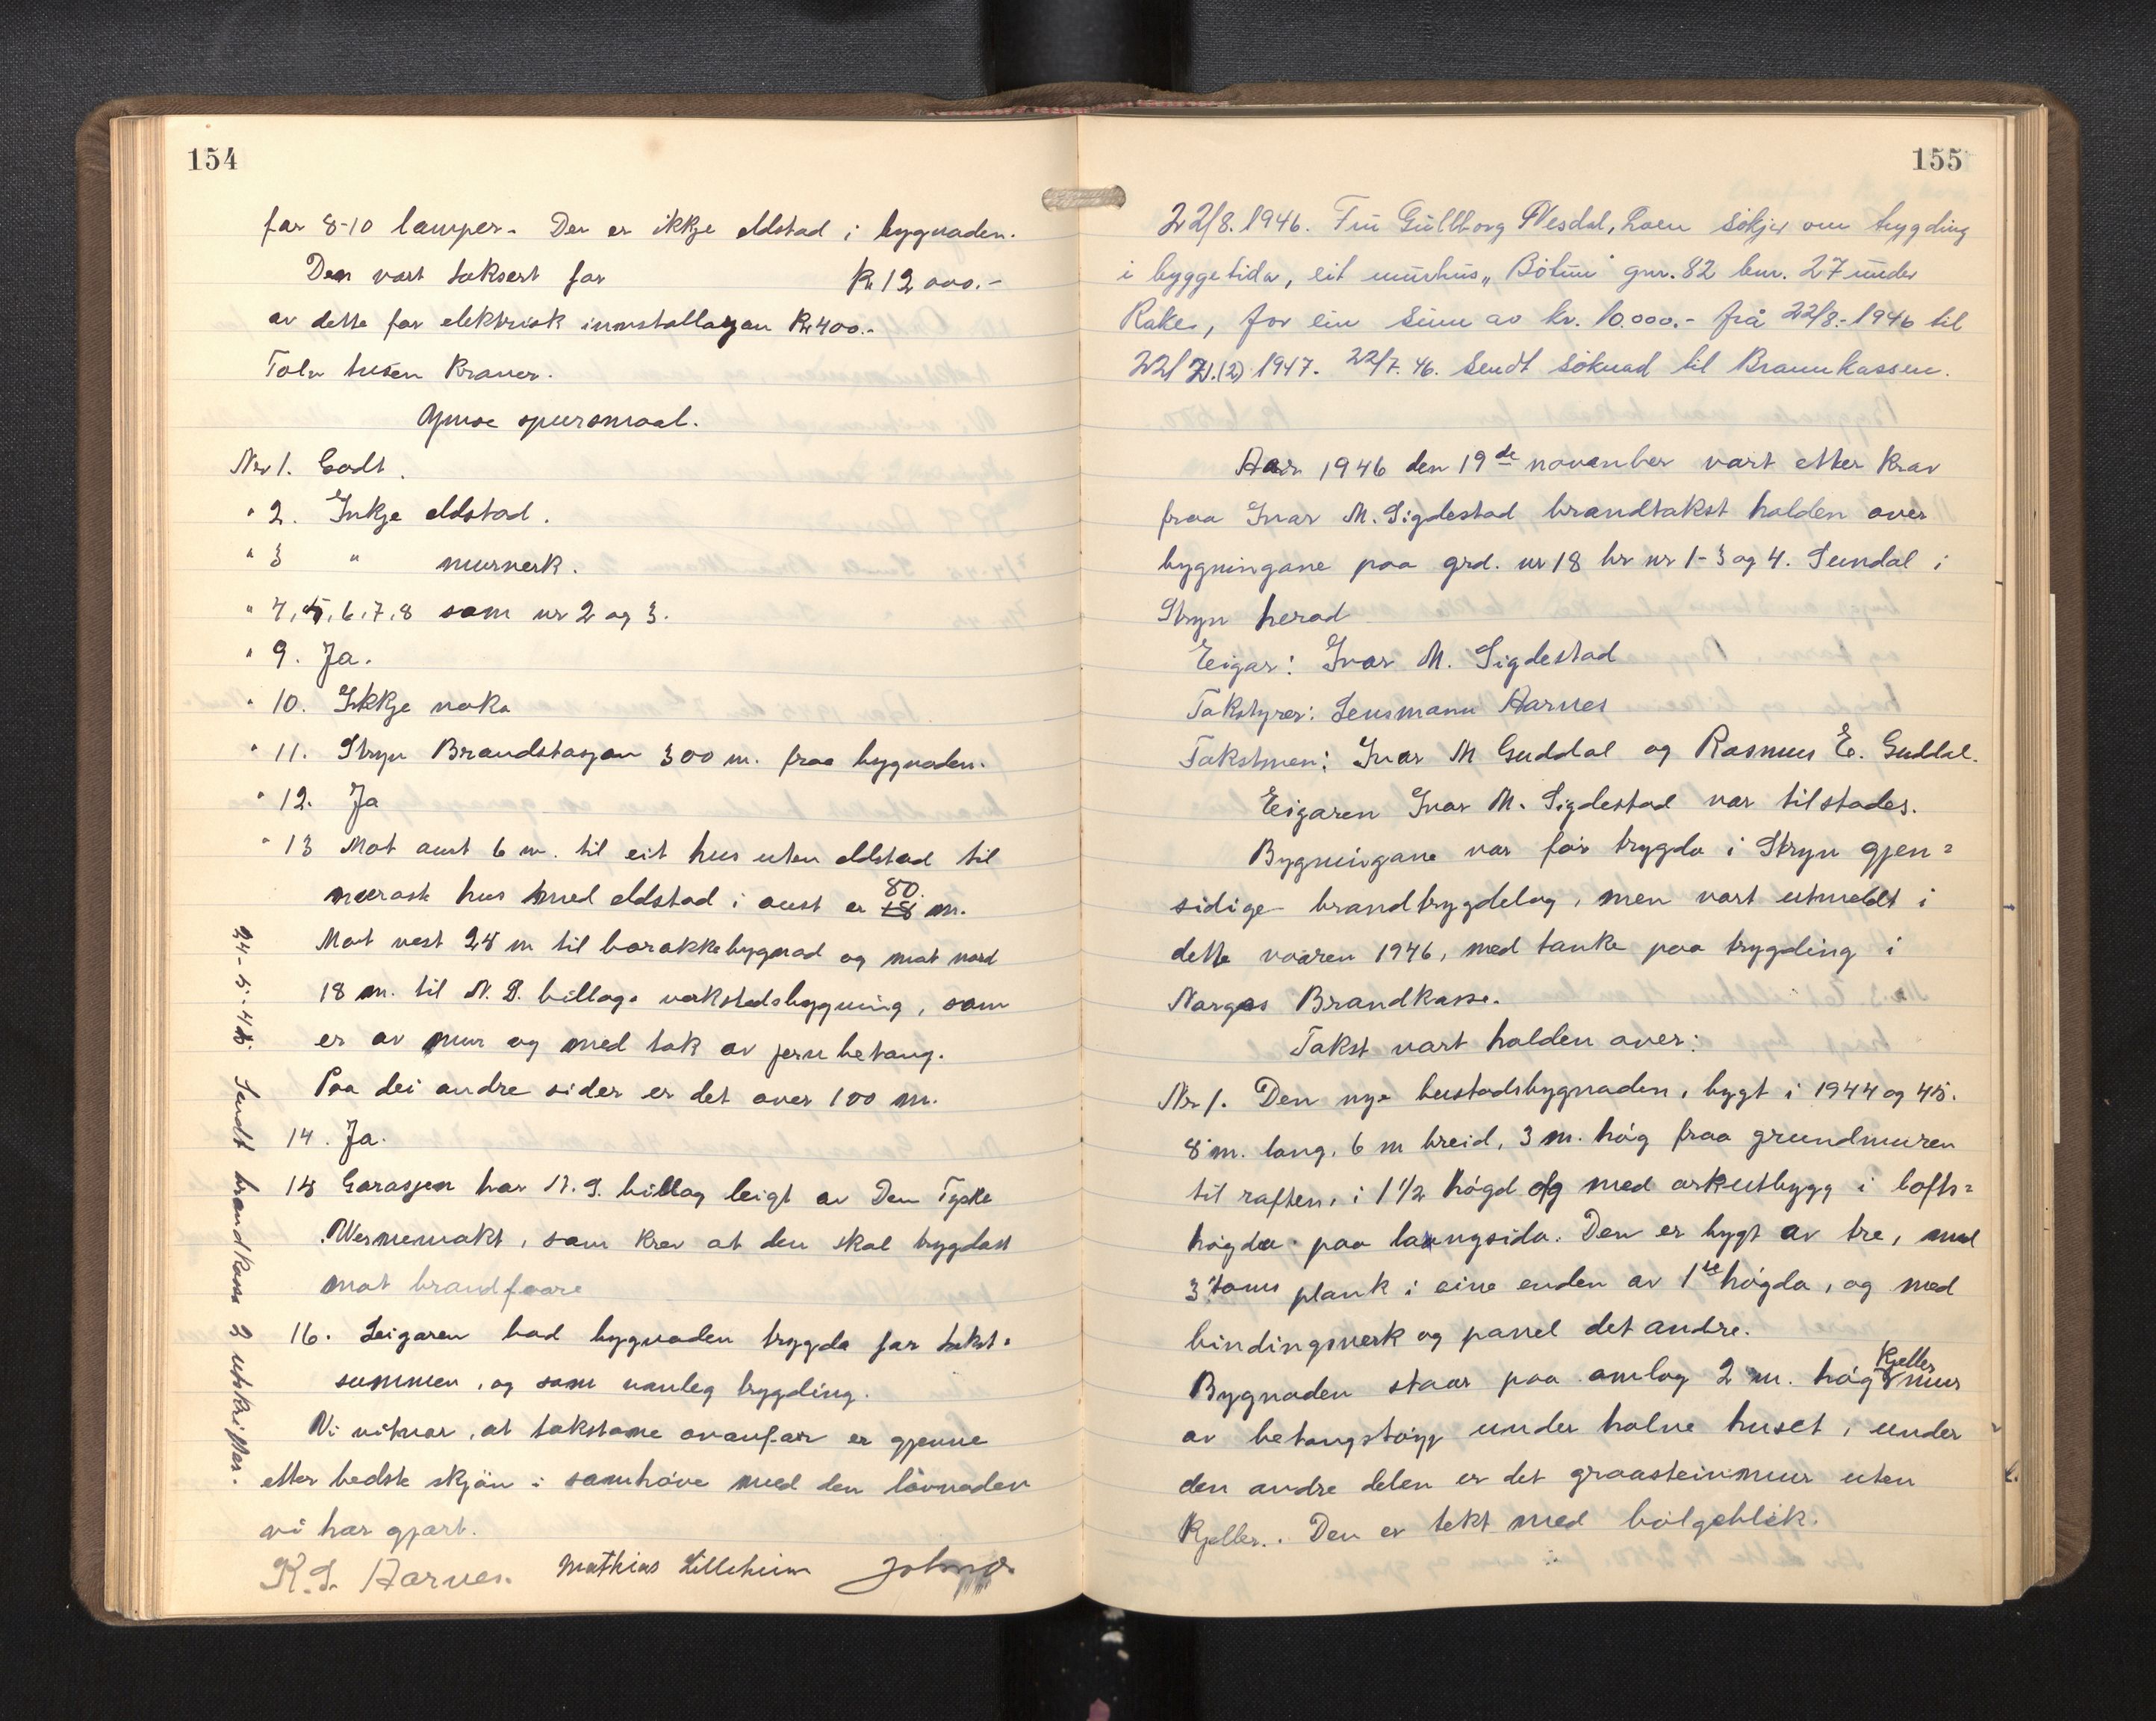 154
for 8-10 lamper. Der er ikkje eldstad i bygnaden.
Den vart taksert for Kr 12 000.-
av dette for elektrisk innstallasjon Kr 400.-
Tolv tusen Kroner.
Ymse spursmaal.
Nr 1. Godt.
" 2. Inkje eldstad.
" 3 " murverk.
" 4, 5, 6, 7, 8 som nr 2 og 3.
" 9. Ja.
" 10. Ikkje noko
" 11. Stryn Brandstasjon 300 m. fraa bygnaden.
" 12. Ja
" 13 Mot aust 6 m. til eit hus uten eldstad til
næraste hus med eldstad i aust er 80 m.
Mot vest 28 m til barakkebygnad og mot nord
18 m. til N. S. billags verkstadsbygning, som
er av mur og med tak av jernbetong.
Paa dei andre sider er det over 100 m.
14. Ja.
15 Garasjen har N. S. billag leigt av Den Tyske
Wernemakt, som krev at den skal trygdast
mot brandfaare
16. Leigaren bad bygnaden trygda for takst-
summen, og som vanleg trygding.
Vi vitnar, at takstane ovanfor er gjevne
etter bedste skjøn i samhøve med den lovnaden
vi har gjort.
K. S. Aarnes. Mathias Lilleheim
24-5-45. Sendt brandkassa 2 utskrifter.
155
22/8. 1946. Fru Gullborg Nesdal, Loen søkjer om trygding
i byggetida, eit murhus "Botun" gnr. 82 bnr. 27 under
Rake, for ein sum av kr. 10.000.- frå 22/8.-1946 til
22/2.(2) 1947. 22/7. 46. Sendt søknad til Brannkassen.
Aar 1946 den 19de november vart etter krav
fraa Ivar M. Sigdestad brandtakst halden over
bygningane paa grd. nr 18 br nr 1-3 og 4. Sundal i
Stryn herad
Eigar: Ivar M. Sigdestad
Takstyrer: Lensmann Aarnes
Takstmen: Ivar M Guddal og Rasmus E. Guddal.
Eigaren Ivar M. Sigdestad var tilstades.
Bygningane var før trygda i Stryn gjen-
sidige brandtrygdelag, men vart utmeldt i
dette vaaren 1946, med tanke paa trygding i
Norges Brandkasse.
Takst vart halden over:
Nr 1. Den nye bustadsbygnaden, bygt i 1944 og 45.
8 m. lang, 6 m breid, 3 m. høg fraa grundmuren
til raften, i 1 1/2 høgd og med arkutbygg i lofts-
høgda paa langsida. Den er bygt av tre, med
3" toms plank i eine enden av 1ste høgda, og med
bindingsverk og panel det andre.
Bygnaden staar paa omlag 2 m. høg kjeller mur
av betongstøyp under halve huset, under
den andre delen er det graasteinsmur uten
kjeller. Den er tekt med bølgeblik.